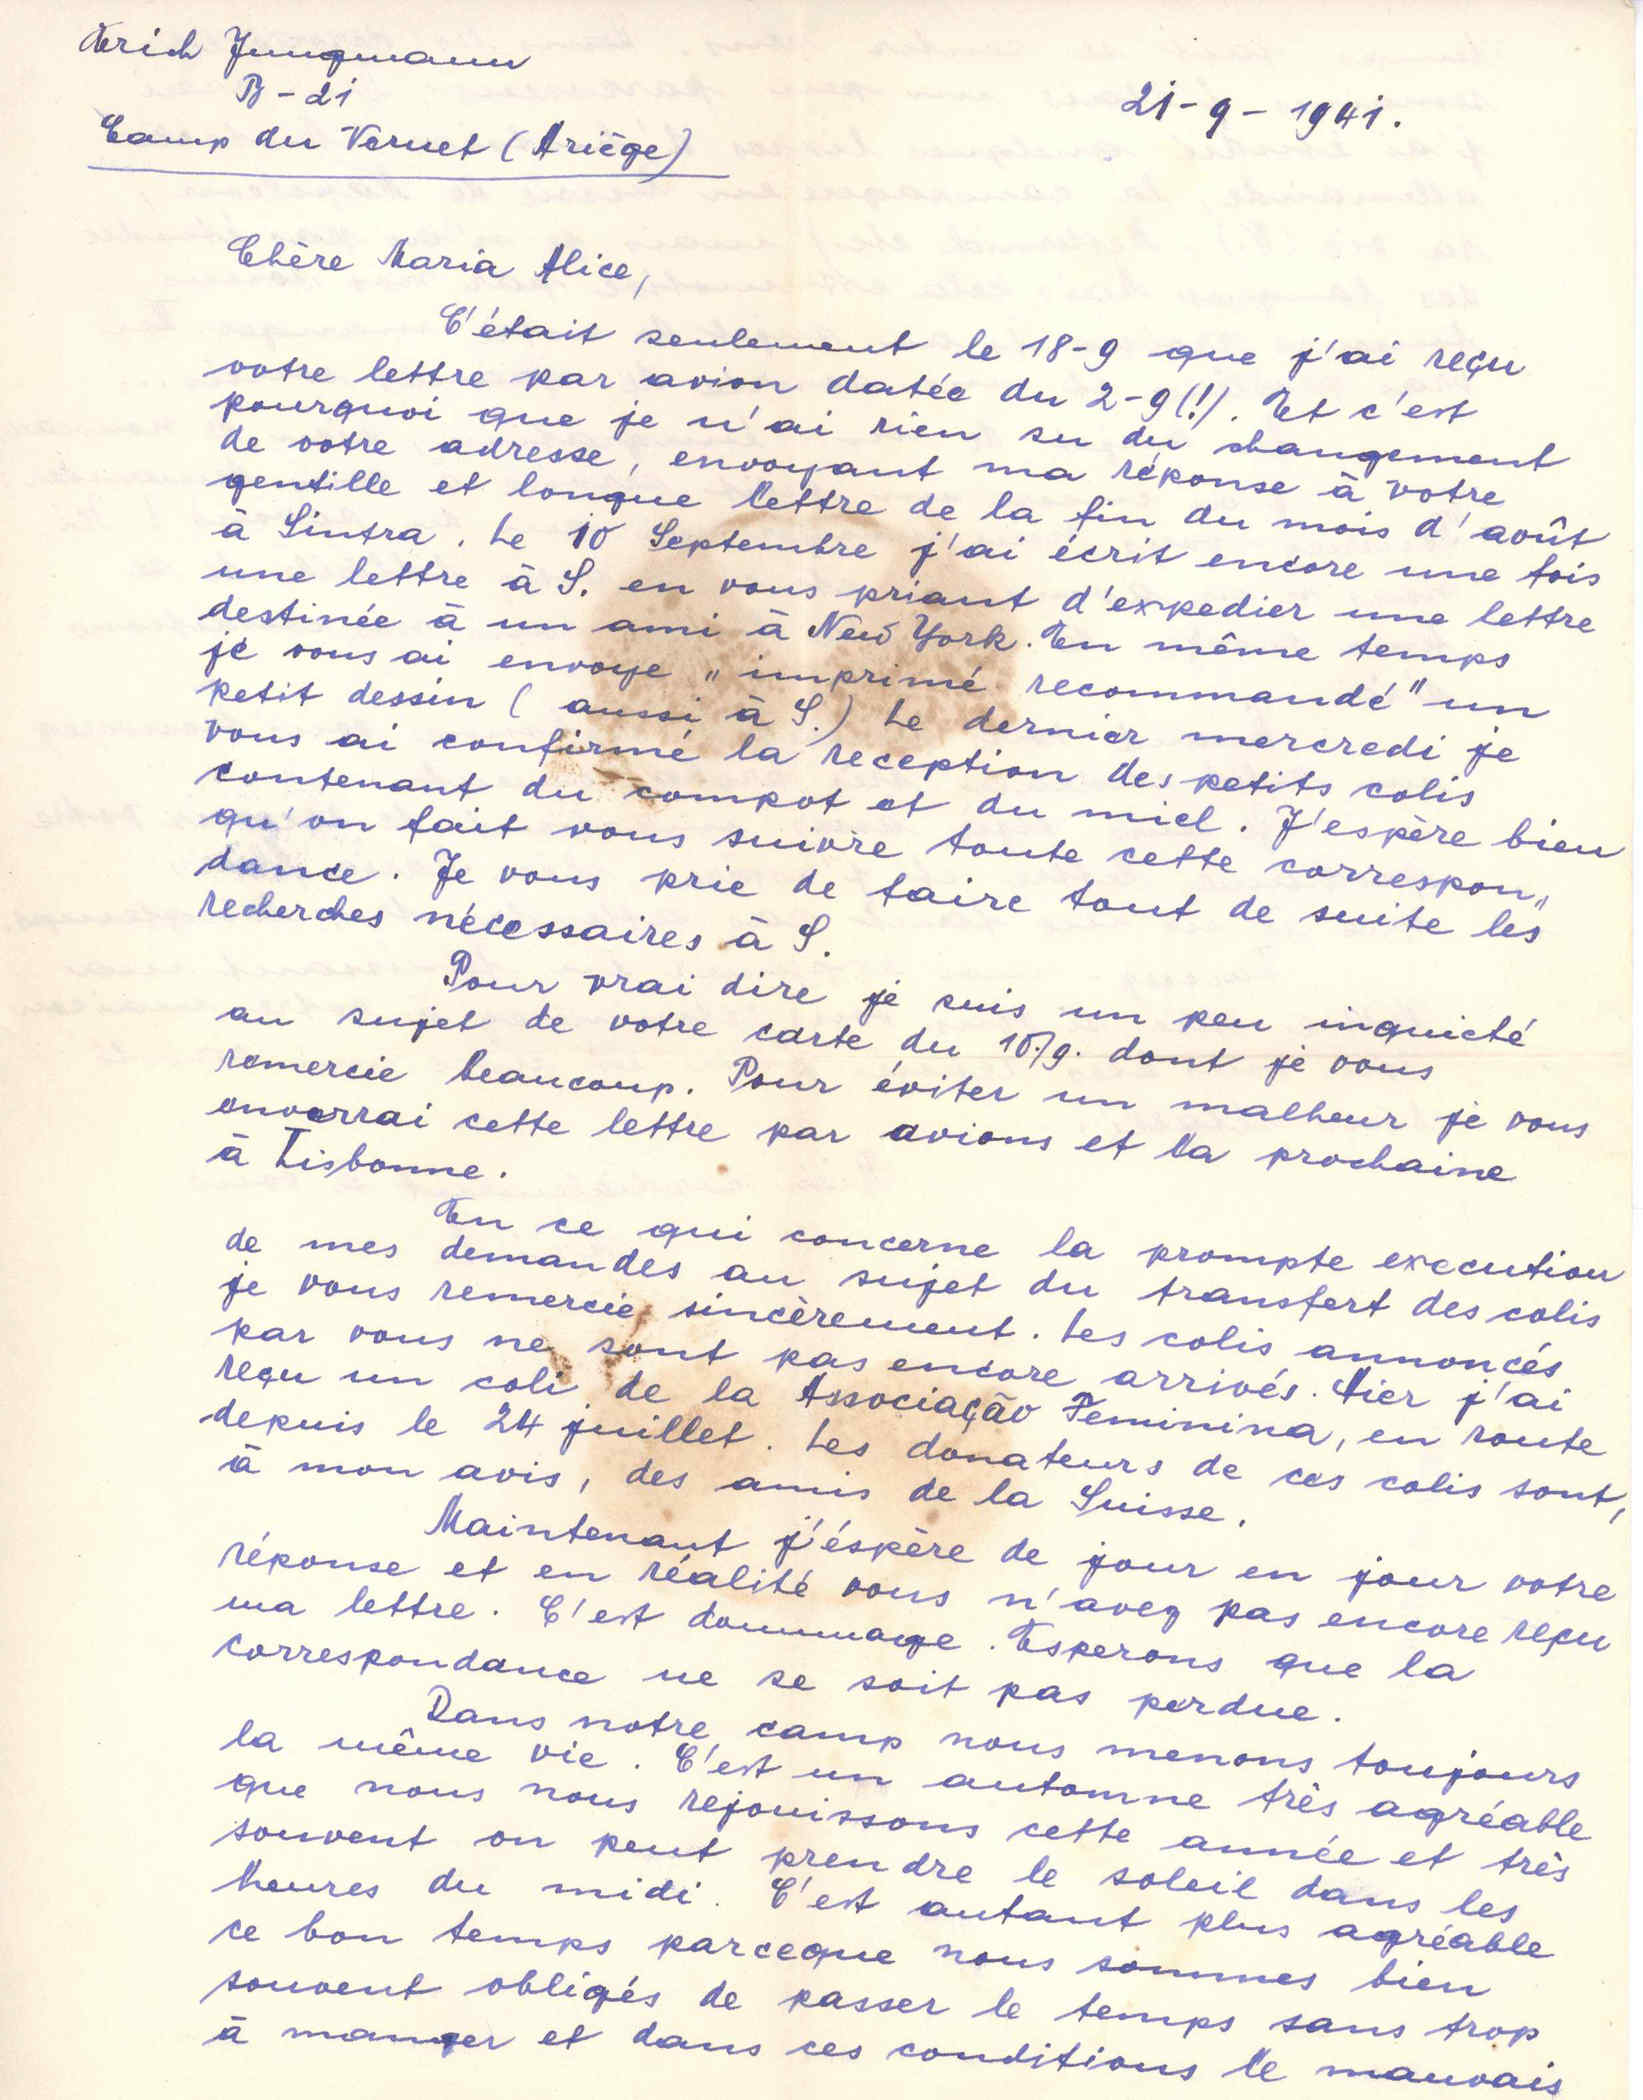 Erich Jungmann
B-21
Camp du Vernet (Ariège)
21-9-1941.
Chère Maria Alice,
C'était seulement le 18-9 que j'ai reçu
votre lettre par avion datée du 2-9(!). Et c'est
pourquoi que je n'ai rien su du changement
de votre adresse, envoyant ma réponse à votre
gentille et longue lettre de la fin du mois d'août
à Sintra. Le 10 Septembre j'ai écrit encore une fois
une lettre à S. en vous priant d'expedier une lettre
destinée à un ami à New York. En même temps
je vous ai envoye „imprimé recommandé" un
petit dessin (aussi à S.) Le dernier mercredi je
vous ai confirmé la reception des petits colis
contenant du compot et du miel. J'espère bien
qu'on fait vous suivre toute cette correspon„
dance. Je vous prie de faire tout de suite les
recherches nécessaires à S.
Pour vrai dire je suis un peu inquieté
au sujet de votre carte du 10/9. dont je vous
remercie beaucoup. Pour éviter un malheur je vous
enverrai cette lettre par avions et la prochaine
à Lisbonne.
En ce qui concerne la prompte execution
de mes demandes au sujet du transfert des colis
je vous remercie sincèrement. Les colis annoncés
par vous ne sont pas encore arrivés. Hier j'ai
reçu un coli de la Associação Feminina, en route
depuis le 24 juillet. Les donateurs de ces colis sont,
à mon avis, des amis de la Suisse.
Maintenant j'éspère de jour en jour votre
réponse et en réalité vous n'avez pas encore reçu
ma lettre. C'est dommage. Esperons que la
correspondance ne se soit pas perdue.
Dans notre camp nous menons toujours
la même vie. C'est un automne très agréable
que nous nous rejouissons cette année et très
souvent on peut prendre le soleil dans les
heures du midi. C'est autant plus agréable
ce bon temps parceque nous sommes bien
souvent obligés de passer le temps sans trop
à manger et dans ces conditions le mauvais